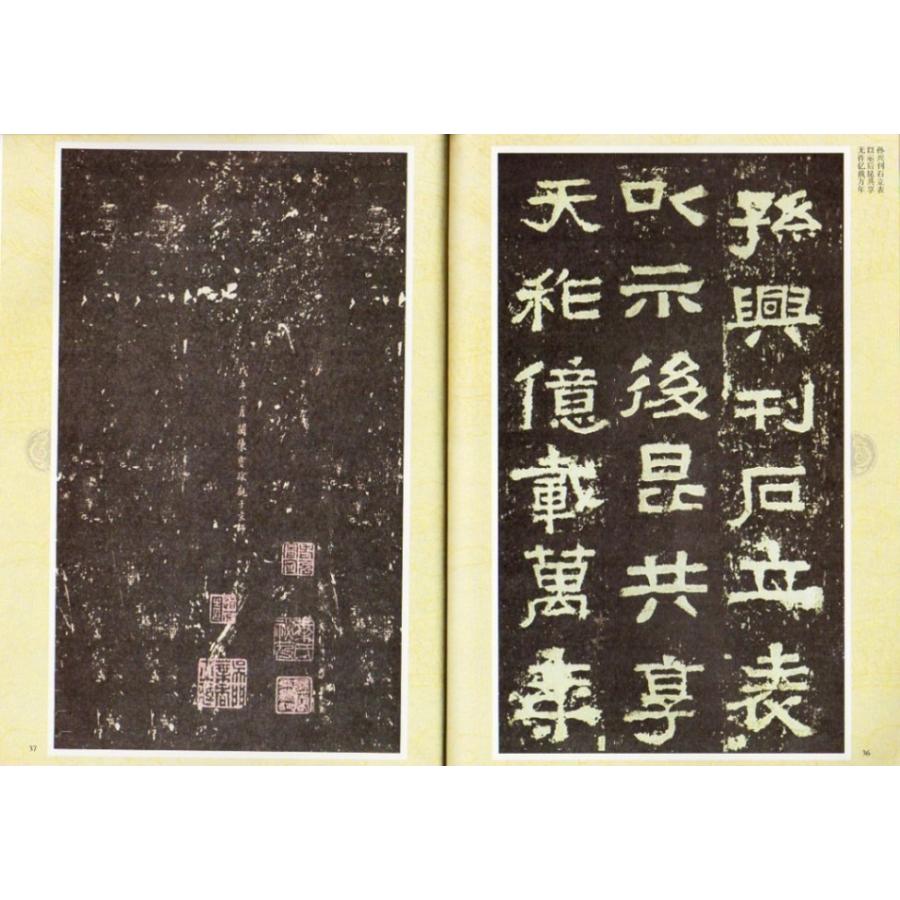 孙兴刊石立表
以示后昆共享
天祚亿载万年
孫興刊石立表
以示後昆共享
天祚億載萬年
36
37